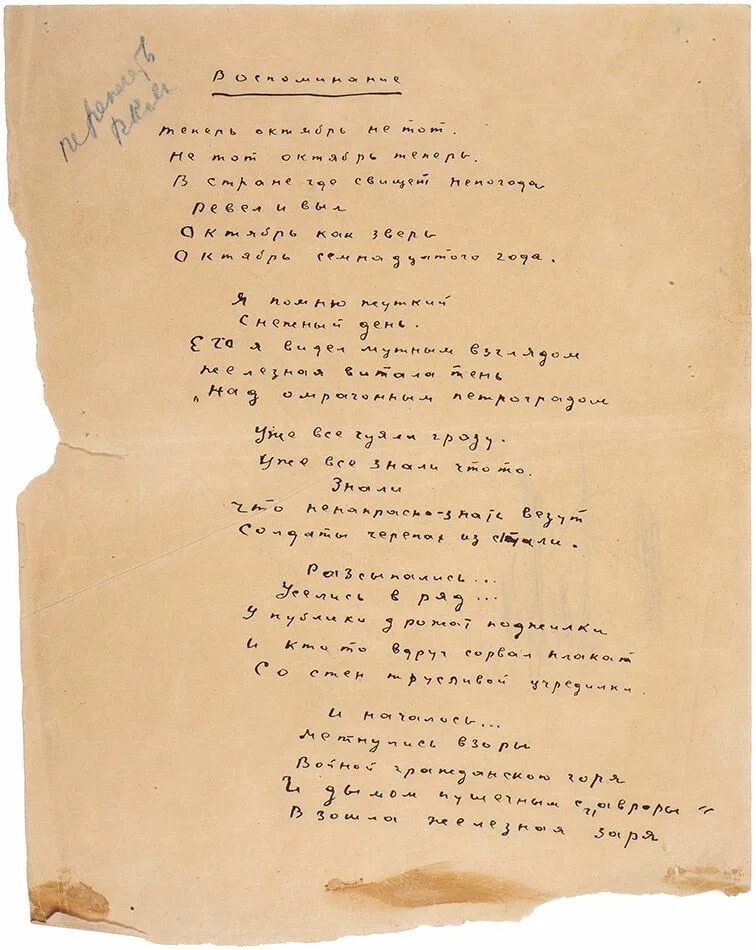 Воспоминание
теперь октябрь не тот.
не тот октябрь теперь.
В стране где свищет непогода
Ревел и выл
Октябрь как зверь
Октябрь семнадцатого года.
Я помню жуткий
Снежный день.
Его я видел мутным взглядом
железная витала тень
„Над омраченным петроградом
Уже все чуяли грозу.
Уже все знали что то.
Знали
что ненапрасно-знать везут
Солдаты черепах из стали.
Разсыпались...
Уселись в ряд...
У публики дрожат поджилки
и кто то вдруг сорвал плакат
Со стен трусливой учредилки.
и началось...
метнулись взоры
Войной гражданскою горя
И дымом пушечным с „авроры“
Взошла железная заря